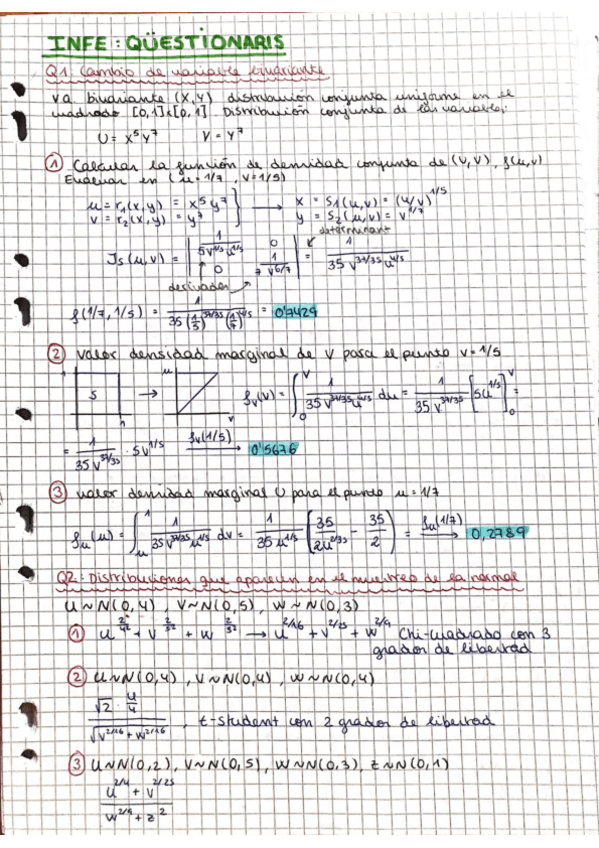 INFE: QÜESTIONARIS
Q1: Cambio de variable bivariante
v.a. bivariante (X,Y) distribución conjunta uniforme en el
cuadrado [0,1]x[0,1]. Distribución conjunta de las variables:
U = X⁵Y⁷ V = Y⁷
① Calcular la función de densidad conjunta de (U,V), f(u,v)
Evaluar en (u=1/7, v=1/5)
u = r₁(x,y) = x⁵y⁷ → x = S₁(u,v) = (u/v)^1/5
v = r₂(x,y) = y⁷ y = S₂(u,v) = v^1/7
determinant
Js(u,v) = | 1/(5v^1/5 u^4/5) 0 ; 0 1/(7 v^6/7) | = 1/(35 v^37/35 u^4/5)
derivadas
f(1/7, 1/5) = 1/(35 (1/5)^37/35 (1/7)^4/5) = 0'7429
② valor densidad marginal de V para el punto v=1/5
1 S 1 → u v
fv(v) = ∫₀^v 1/(35 v^37/35 u^4/5) du = 1/(35 v^37/35) [5u^1/5]₀^v =
= 1/(35 v^37/35) · 5v^1/5 fv(1/5) → 0'5676
③ valor densidad marginal U para el punto u=1/7
fu(u) = ∫u^1 1/(35 v^37/35 u^4/5) dv = 1/(35 u^4/5) [35/(2u^2/35) - 35/2] = fu(1/7) → 0,2789
Q2: Distribuciones que aparecen en el muestreo de la normal
U~N(0,4), V~N(0,5), W~N(0,3)
① u^2/4² + v^2/5² + w^2/3² → u^2/16 + v^2/25 + w^2/9 Chi-cuadrado con 3
grados de libertad
② U~N(0,4), V~N(0,4), W~N(0,4)
√2 · u/4 / √(v^2/16 + w^2/16), t-student con 2 grados de libertad
③ U~N(0,2), V~N(0,5), W~N(0,3), Z~N(0,1)
u^2/4 + v^2/25
w^2/9 + z²